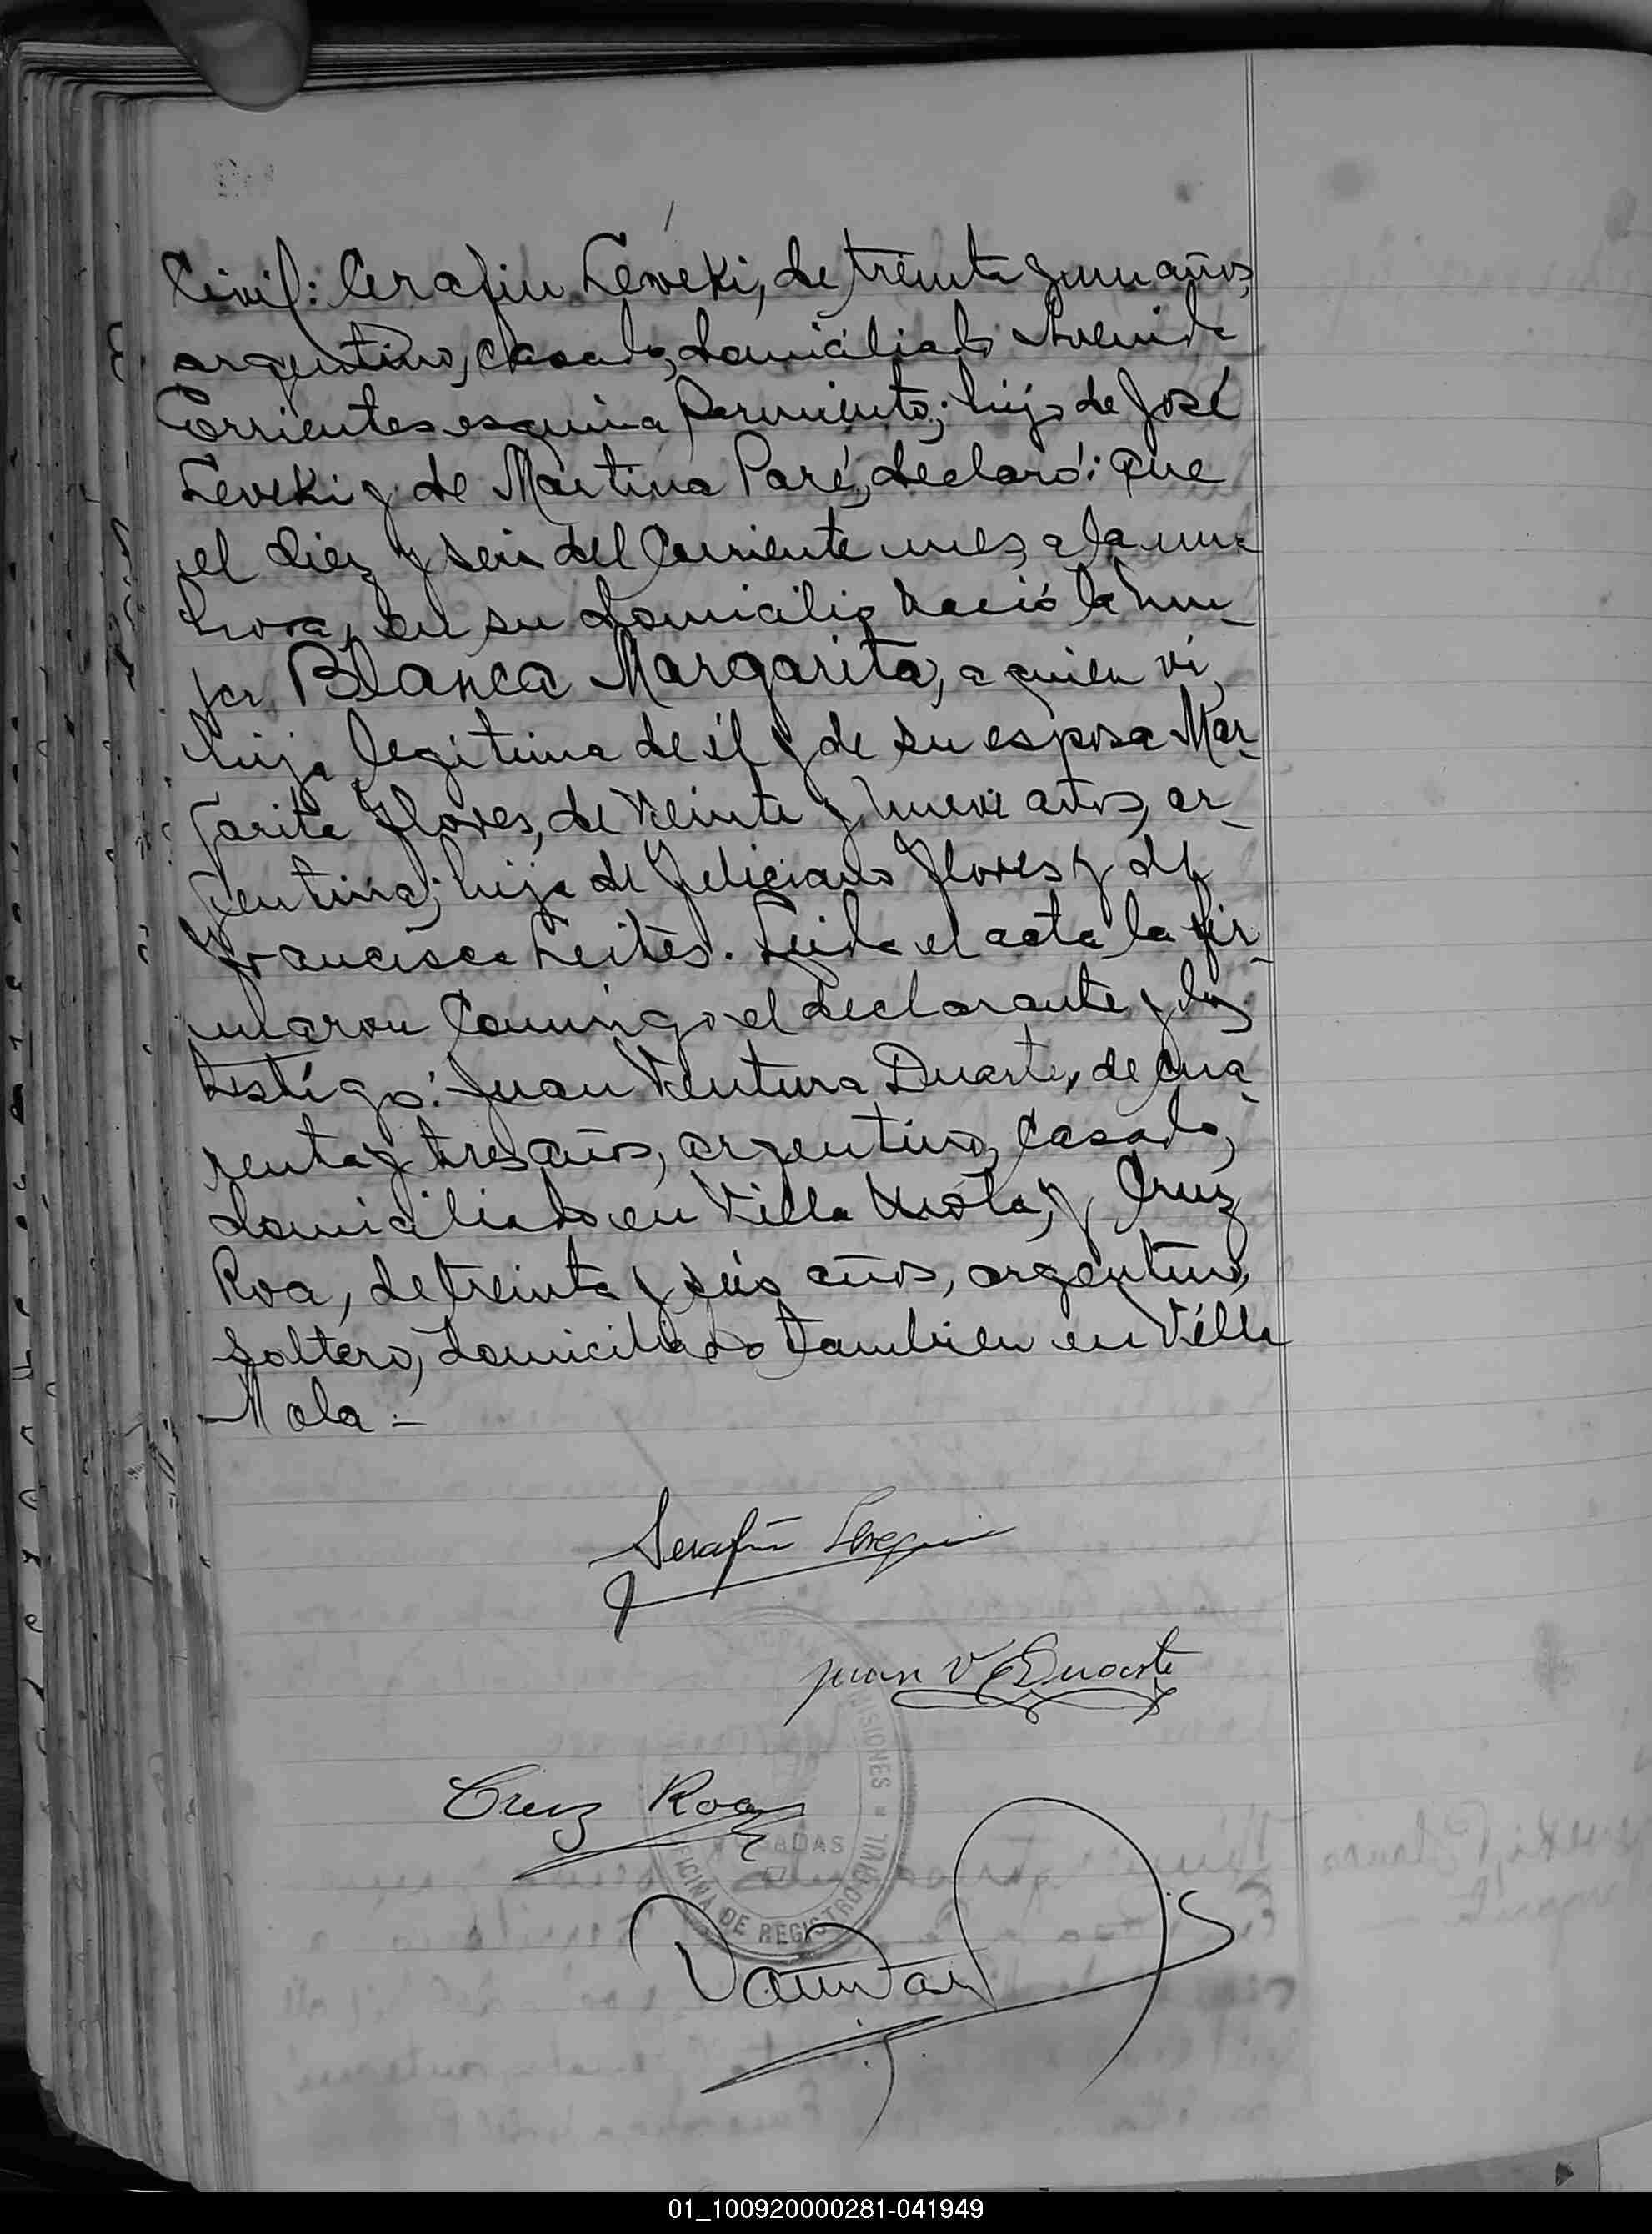 Civil: Cerafin Leveki, de treinta y un años,
argentino, casado, domiciliado Avenida
Corrientes esquina Sarmiento; hijo de José
Leveki y de Martina Paré, declaró: que
el diez y seis del corriente mes, a la una
hora, en su domicilio nació la mu-
jer Blanca Margarita, a quien vi,
hija legítima de él y de su esposa Mar-
garita Flores, de veinte y nueve años, ar-
gentina; hija de Feliciano Flores y de
Francisca Leites. Leida el acta la fir-
maron conmigo el declarante y los
testigos: Juan Ventura Duarte, de cua-
renta y tres años, argentino, casado,
domiciliado en Villa Mola, y Cruz
Roa, de treinta y seis años, argentino,
soltero, domiciliado tambien en Villa
Mola =
Serafín
Juan V Duarte
Cruz Roa
MISIONES
POSADAS
OFICINA DE REGISTRO CIVIL
01_100920000281-041949